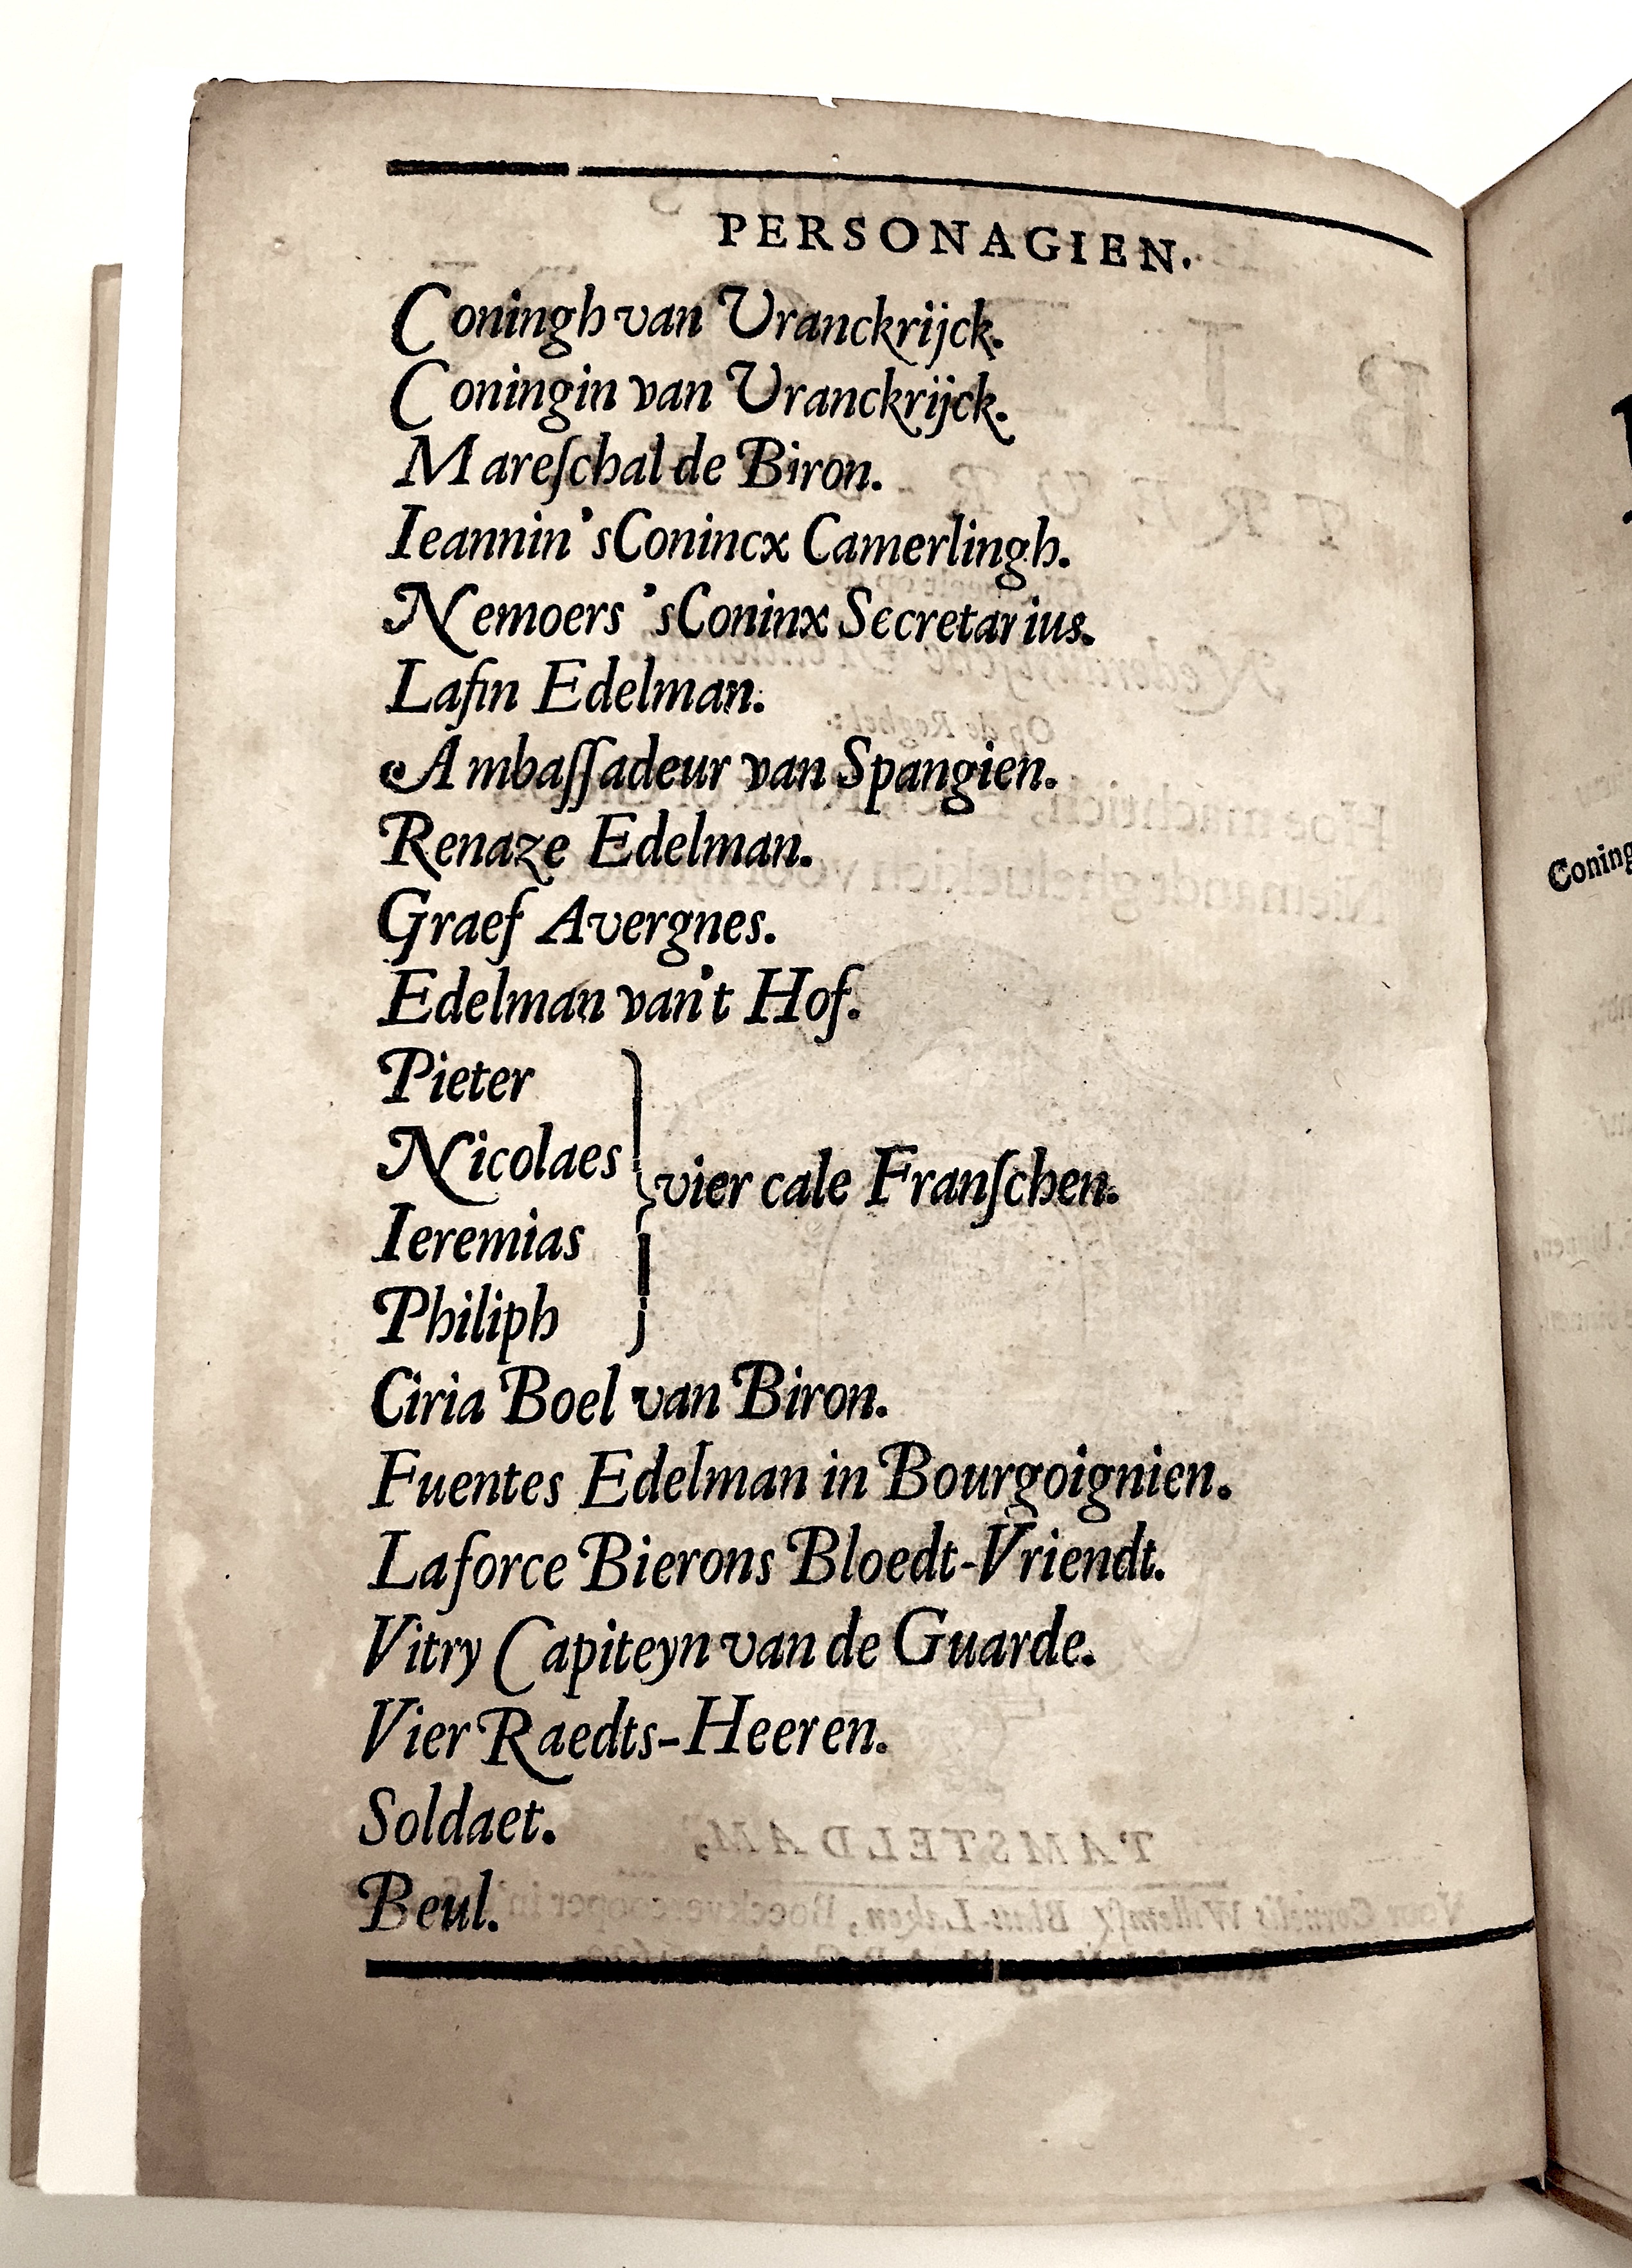 PERSONAGIEN.
Coningh van Vranckrijck.
Coningin van Vranckrijck.
Mareſchal de Biron.
Ieannin 'sConincx Camerlingh.
Nemoers 'sConinx Secretarius.
Lafin Edelman.
Ambaſſadeur van Spangien.
Renaze Edelman.
Graef Avergnes.
Edelman van't Hof.
Pieter
Nicolaes
vier cale Franſchen.
Ieremias
Philiph
Ciria Boel van Biron.
Fuentes Edelman in Bourgoignien.
Laforce Bierons Bloedt-Vriendt.
Vitry Capiteyn van de Guarde.
Vier Raedts-Heeren.
Soldaet.
Beul.